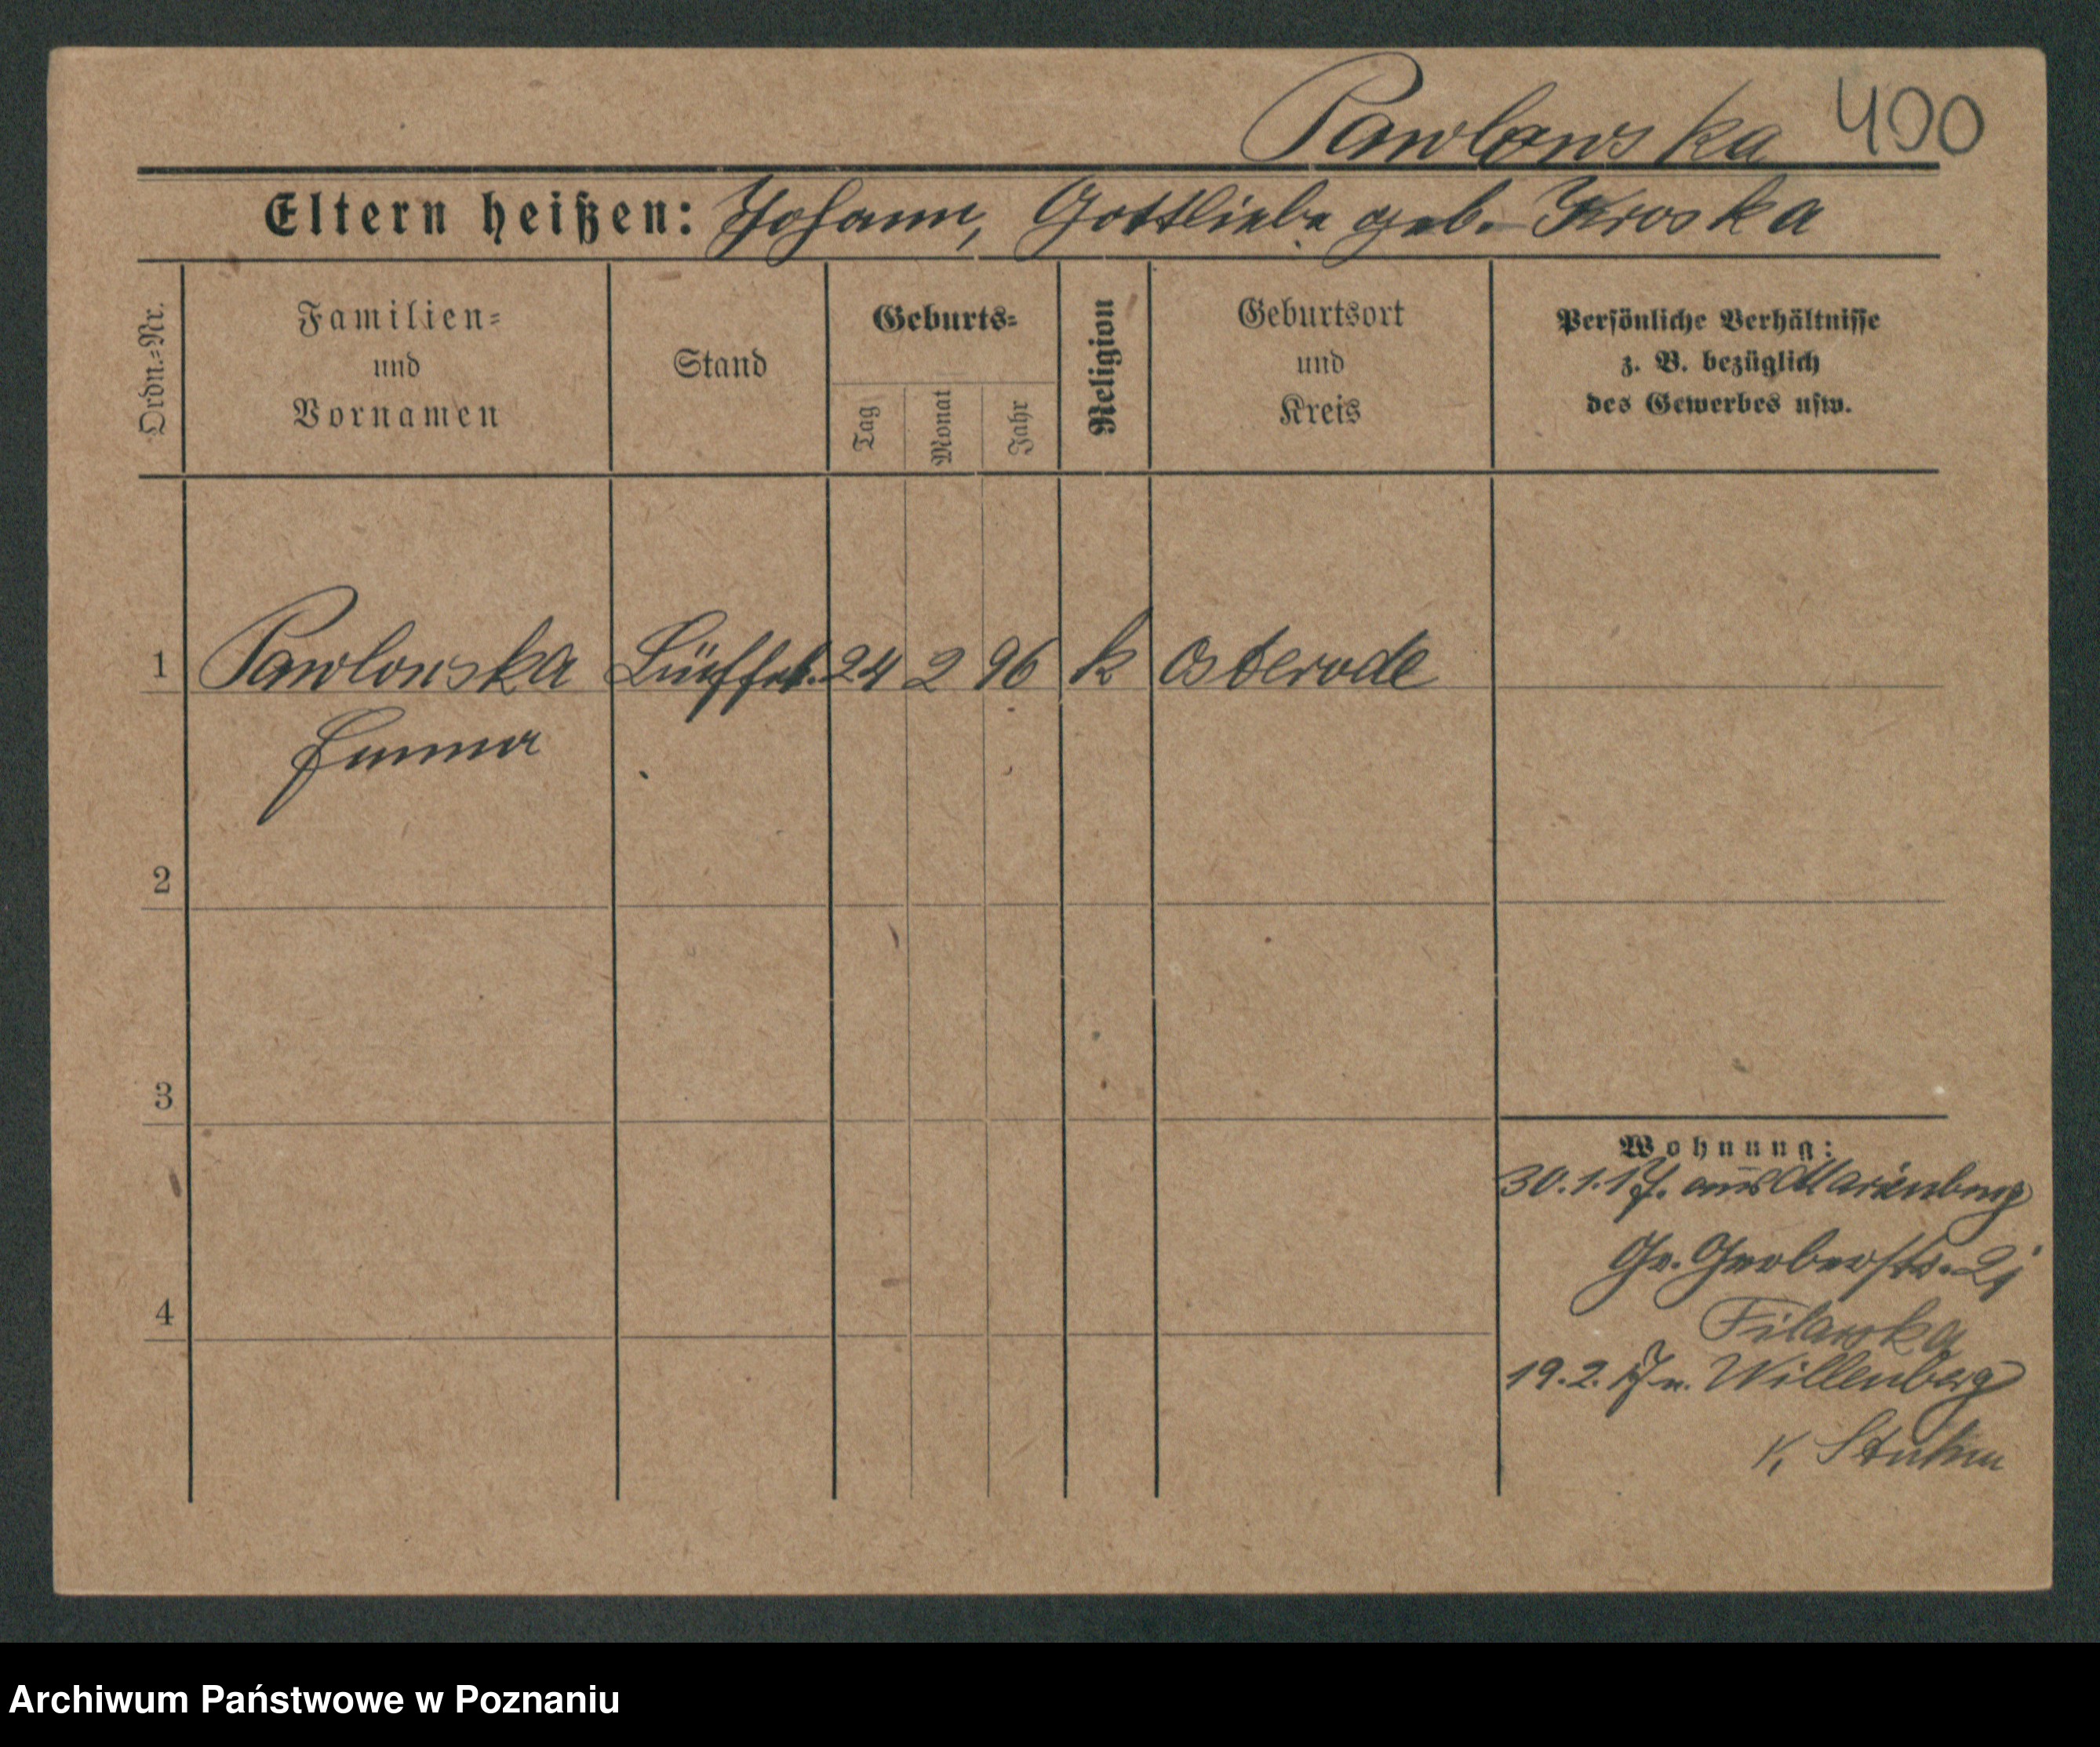 Pawlowska 400
Eltern heißen: Johann, Gottliebe geb. Kroska
Ordn.=Nr.
Familien=
und
Vornamen
Stand
Geburts=
Tag
Monat
Jahr
Religion
Geburtsort
und
Kreis
Persönliche Verhältnisse
z. B. bezüglich
des Gewerbes usw.
1 Pawlowska Büffet. 24 2 96 k Osterode
Emma
2
3
4
Wohnung:
30.1.17. aus Marienburg
Gr. Gerberstr. 21
Filarska
19.2.17 n. Willenberg
K. Stuhm
Archiwum Państwowe w Poznaniu